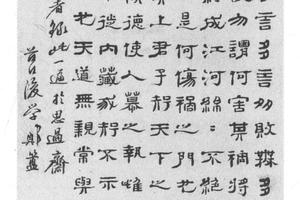 言多言多敗無多
勿謂何害其禍將
成江河綿綿不絕
是何傷禍之門也
上君子知天下之
德使人慕之執雌
從內藏我知不
也天道無親常與
者錄此一通於思過齋
谷口後學鄭簠